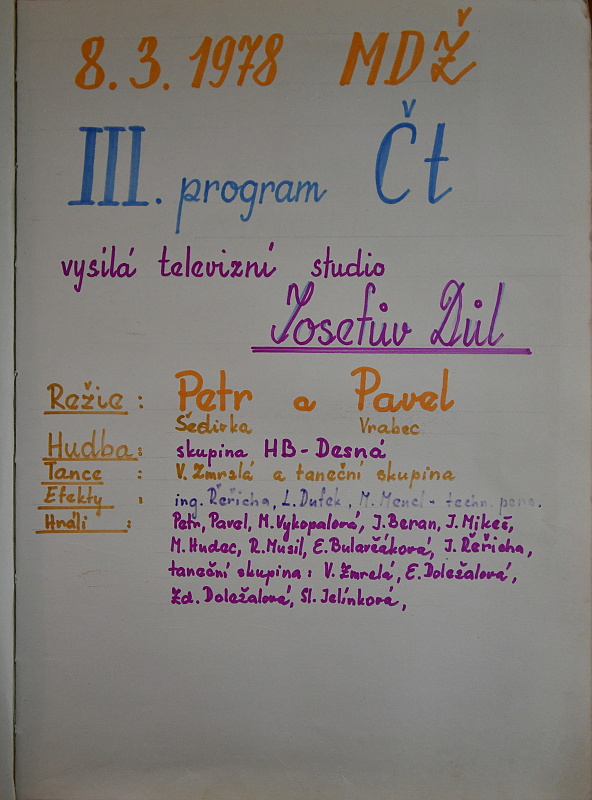 8. 3. 1978 MDŽ
III. program Čt
vysílá televizní studio
Josefův Důl
Režie: Petr a Pavel
Šedirka Vrabec
Hudba: skupina HB-Desná
Tance : V. Zmrzlá a taneční skupina
Efekty : ing. Řeřicha, L. Dufek, M. Mencl - techn. pers.
Hráli : Petr, Pavel, M. Vykopalová, J. Beran, J. Mikeš,
M. Hudec, R. Musil, E. Bularčáková, J. Řeřicha,
taneční skupina: V. Zmrzlá, E. Doležalová,
Zd. Doležalová, Sl. Jelínková,